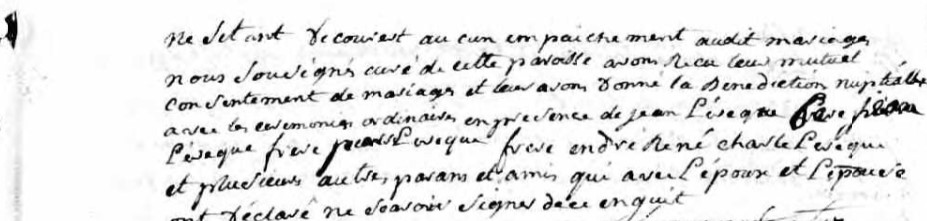 ne setant decouvest au cun empaichement audit mariages
nous sousignés curé de cette paroisse avons Recu leur mutuel
consentement de mariages et leur avons donné la Benediction nuptialle
avec les ceremonies ordinaires en presence de jean Lévêque frere
Lévêque frere Levêque frere endré René charle Levêque
et plusieurs autres parans et amis qui avec L'époux et L'épouse
ont déclaré ne scavoir signes de ce enquit